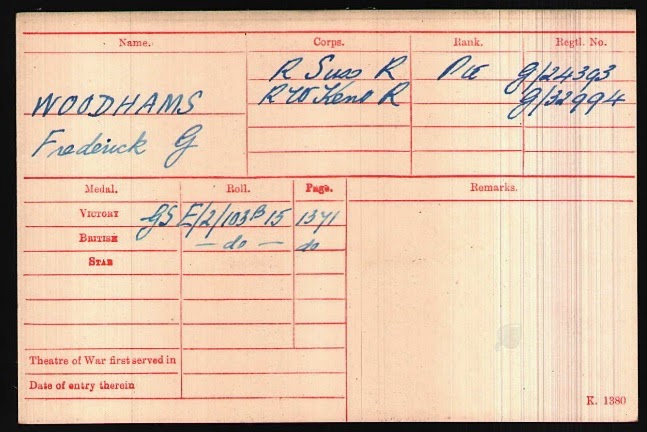 Name. Corps. Rank. Regtl. No.
R Suss R Pte G/24393
WOODHAMS R W Kent R G/32994
Frederick G
Medal. Roll. Page. Remarks.
VICTORY GS E/2/103B15 1371
BRITISH — do — do
STAR
Theatre of War first served in
Date of entry therein
K. 1380